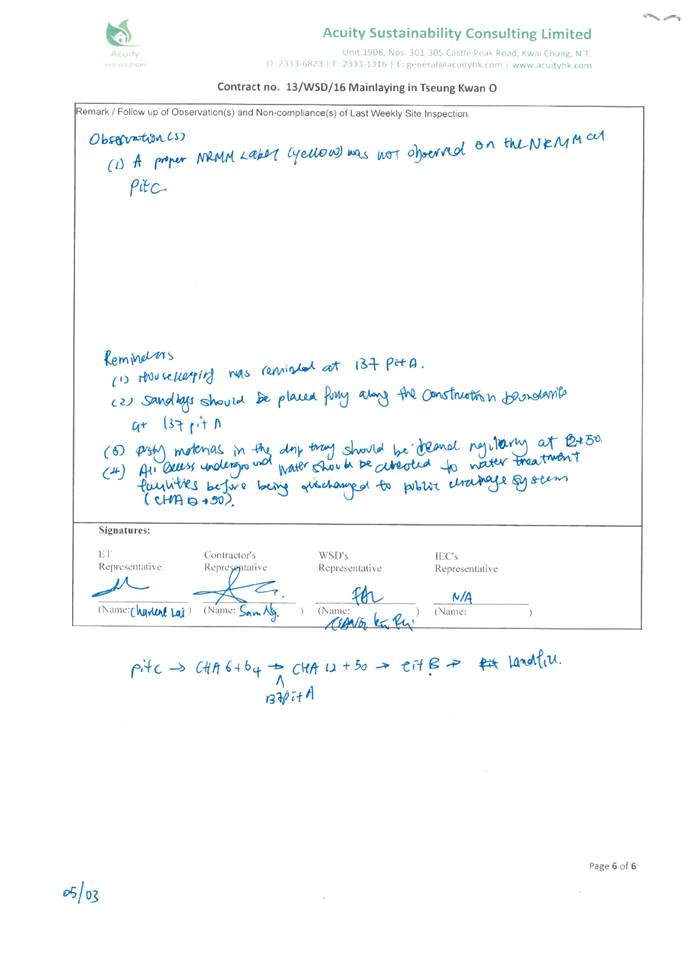 Acuity Sustainability Consulting Limited
Unit 1908, Nos. 301-305 Castle Peak Road, Kwai Chung, N.T.
Acuity
O: 2333-6823 | F: 2333-1316 | E: general@acuityhk.com | www.acuityhk.com
Contract no. 13/WSD/16 Mainlaying in Tseung Kwan O
Remark / Follow up of Observation(s) and Non-compliance(s) of Last Weekly Site Inspection:
Observation(s)
(1) A proper NRMM Label (yellow) was not observed on the NRMM at
Pit C.
Reminders
(1) Housekeeping was reminded at 137 Pit A.
(2) Sandbags should be placed fully along the construction boundaries
at 137 pit A
materials in the drip tray should be regularly at
(4) All excess underground water should be directed to water treatment
facilities before being discharged to public drainage system
(CHA 12+50).
Signatures:
ET Representative
Contractor's Representative
WSD's Representative
IEC's Representative
N/A
(Name: )
(Name: Sam Ng. )
(Name: )
(Name: )
Pit C → CHA 6+64 → CHA 12+50 → Pit B → landfill.
^
137 Pit A
Page 6 of 6
05/03